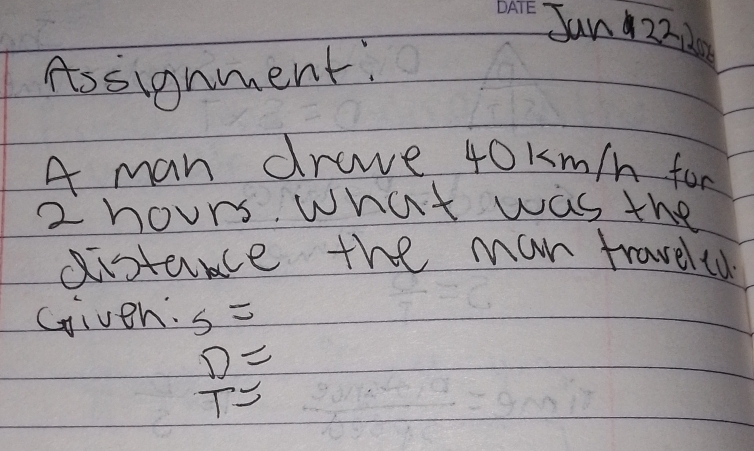 DATE Jun 22, 202
Assignment:
A man drove 40 km/h for
2 hours. What was the
distance the man traveled.
Given: s =
D =
T =